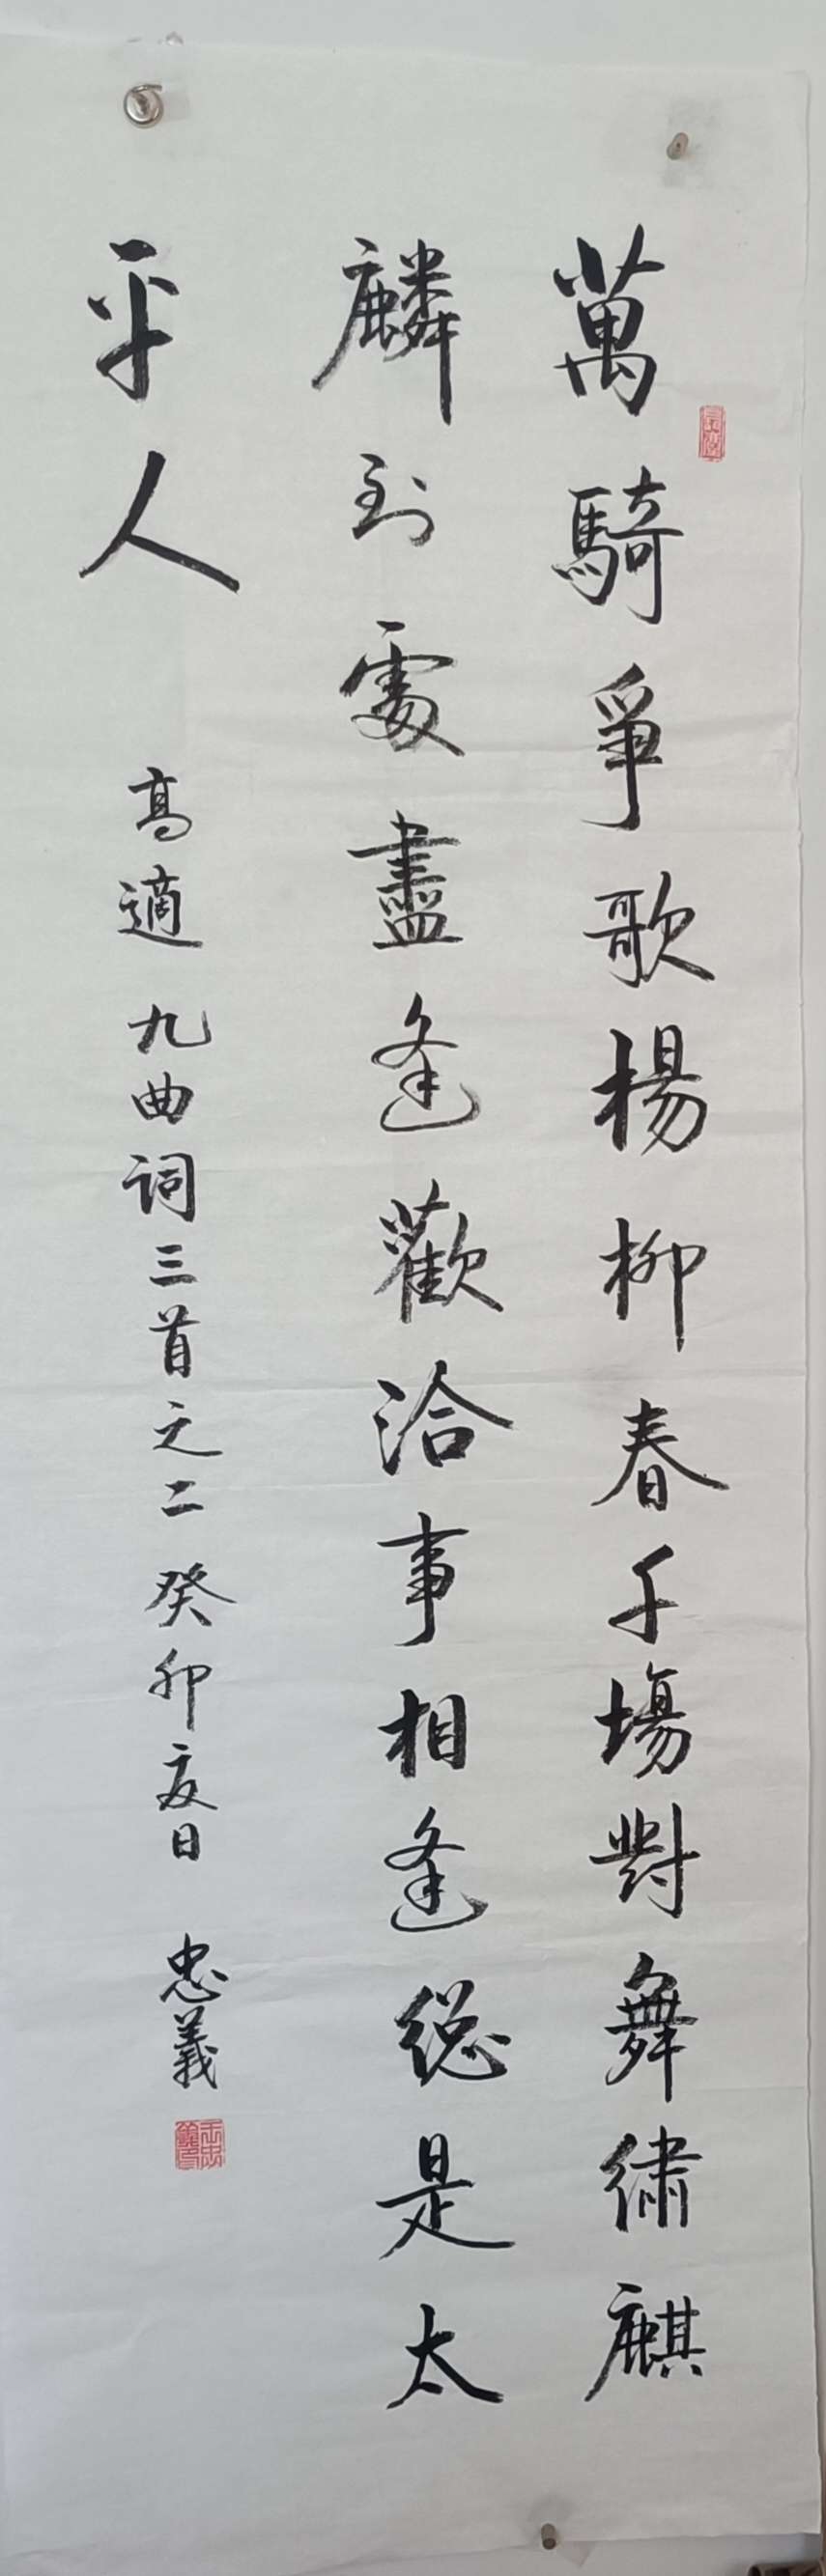 萬騎爭歌楊柳春千場對舞繡麒
麟到處盡逢歡洽事相逢總是太
平人
高適 九曲词三首之二 癸卯夏日 忠義